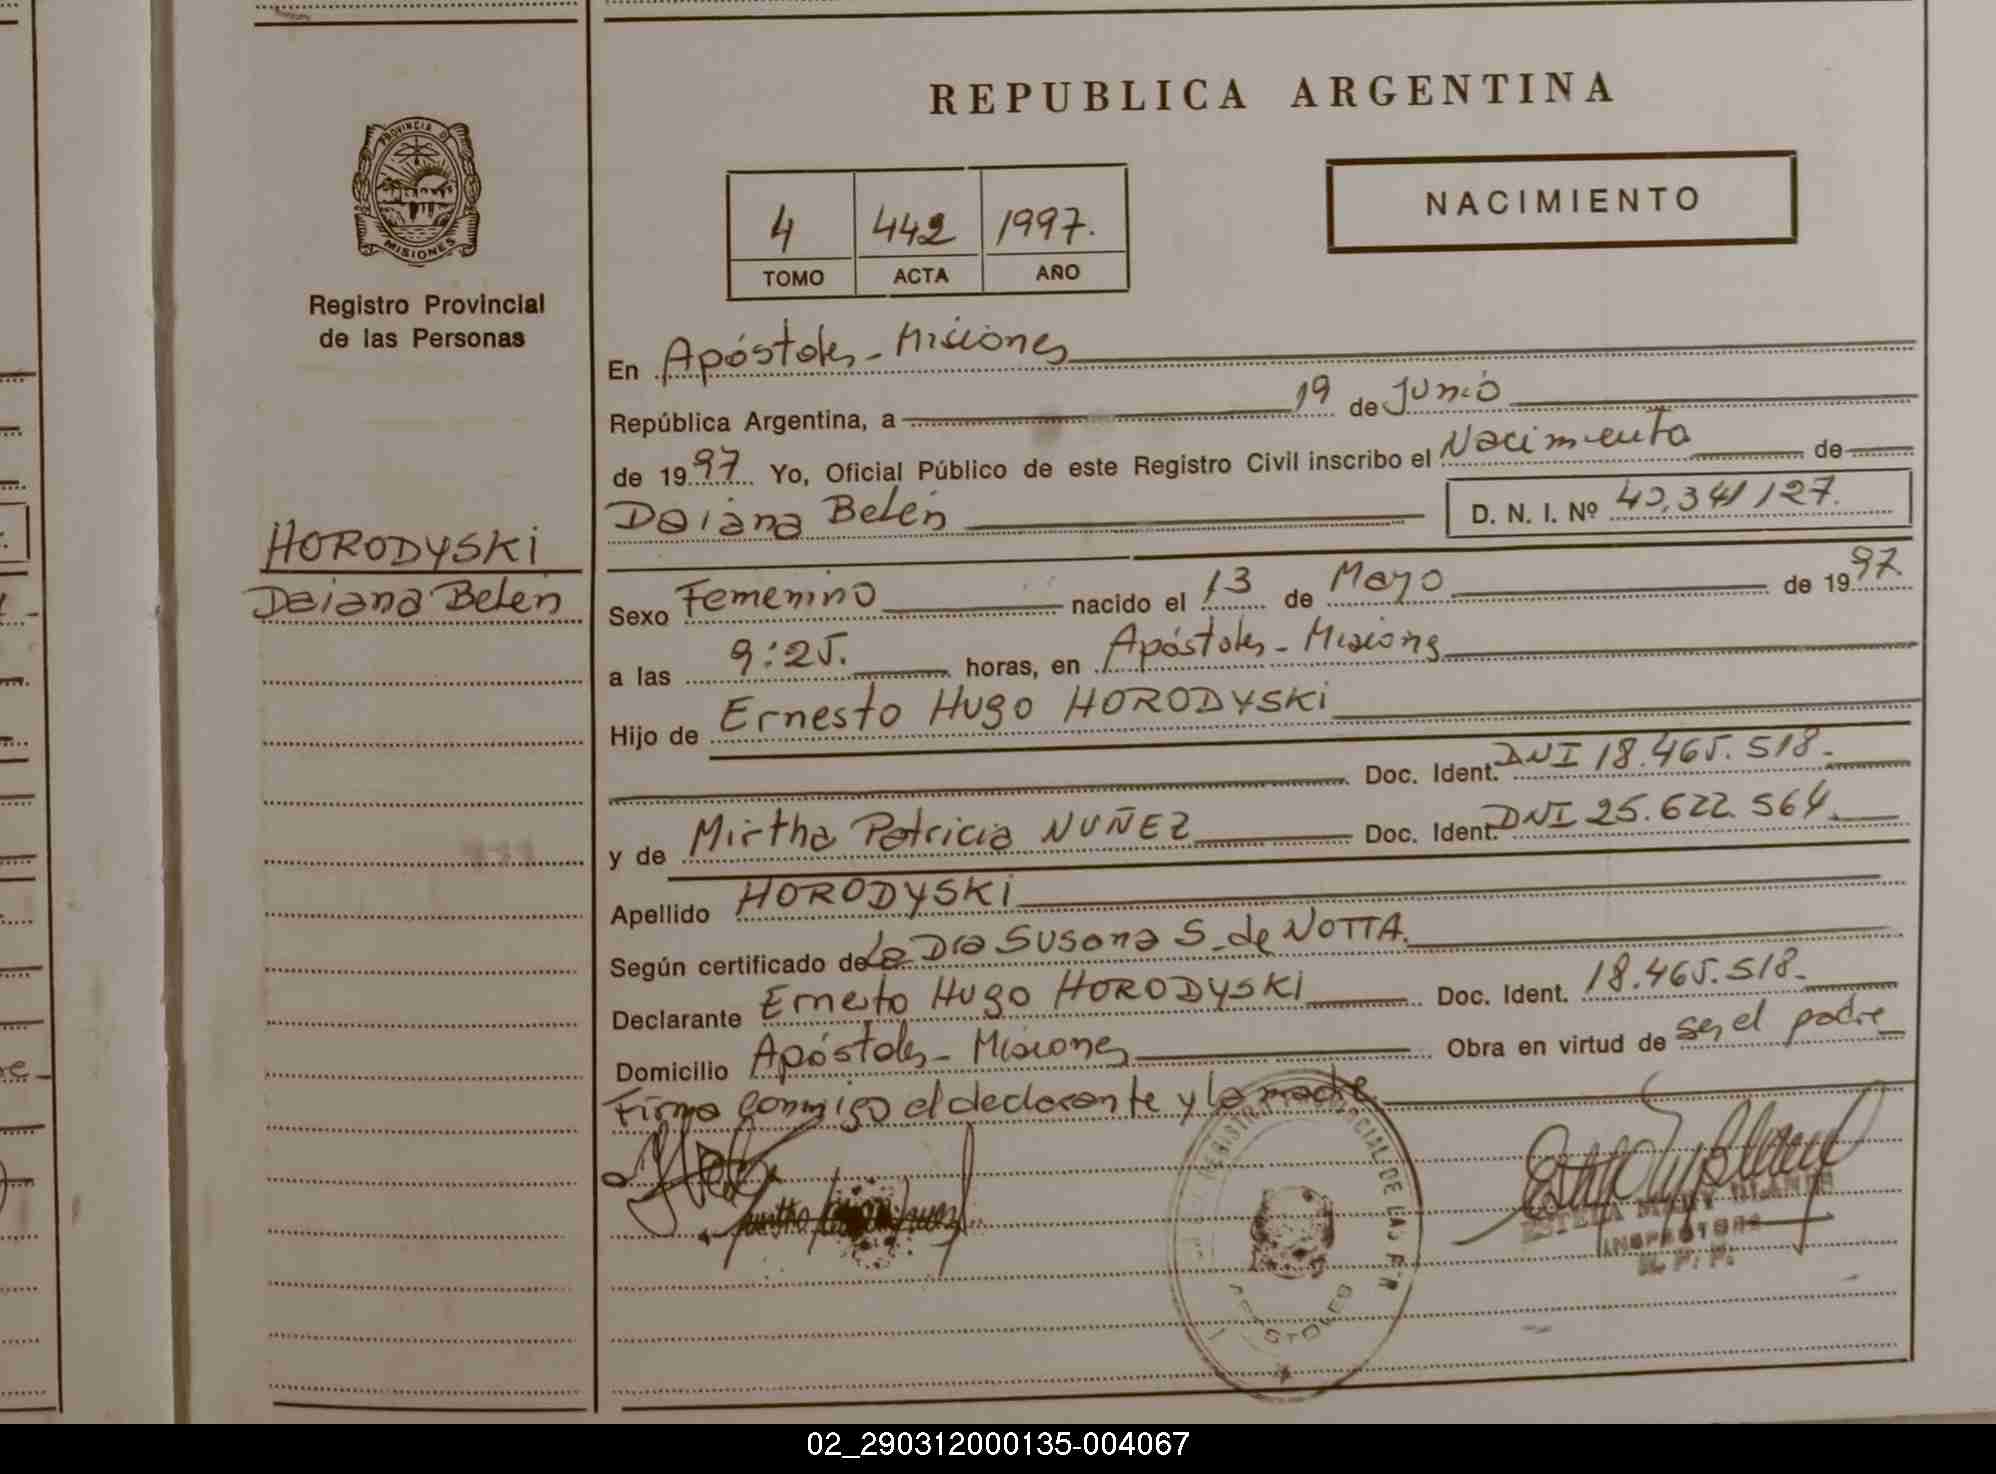 REPUBLICA ARGENTINA
PROVINCIA D
MISIONES
Registro Provincial
de las Personas
4 442 1997.
TOMO ACTA AÑO
NACIMIENTO
HORODYSKi
Daiana Belén
En Apóstoles - Misiones
República Argentina, a 19 de Junio
de 1997 Yo, Oficial Público de este Registro Civil inscribo el Nacimiento de
Daiana Belén D. N. I. Nº 40.341127.
Sexo Femenino nacido el 13 de Mayo de 1997
a las 9:25. horas, en Apóstoles - Misiones
Hijo de Ernesto Hugo HORODYSKi
Doc. Ident. DNI 18.465.518.-
y de Mirtha Patricia NUÑEZ Doc. Ident. DNI 25.622.564.
Apellido HORODYSKi
Según certificado de La Dra Susana S. de NOTTA.
Declarante Ernesto Hugo HORODYSKi Doc. Ident. 18.465.518.-
Domicilio Apóstoles - Misiones Obra en virtud de ser el padre
Firma conmigo el declarante y la madre
INSPECTORA
R. P. P.
APOSTOLES
02_290312000135-004067